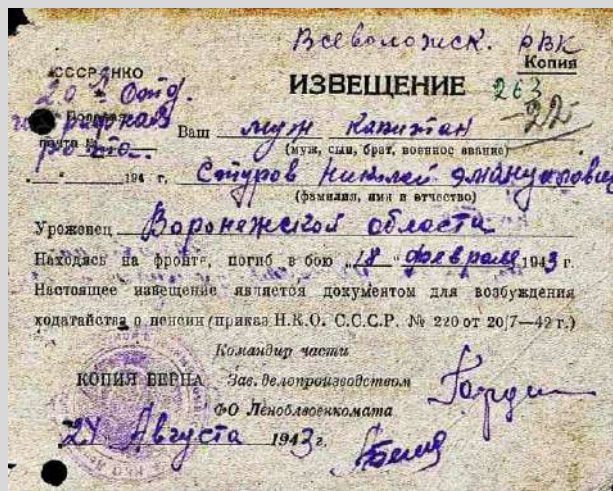 Всеволожск. РВК
СССР-НКО Копия
ИЗВЕЩЕНИЕ 263
20 Отд. -22-
Полевая
почта № рота Ваш муж капитан
(муж, сын, брат, военное звание)
"  "  194  г. Стуров Николай Эмануилович
(фамилия, имя и отчество)
Уроженец Воронежской области
Находясь на фронте, погиб в бою "18" февраля 1943 г.
Настоящее извещение является документом для возбуждения
ходатайства о пенсии (приказ Н.К.О. С.С.С.Р. № 220 от 20/7—42 г.)
Командир части
КОПИЯ ВЕРНА Зав. делопроизводством
ФО Леноблвоенкомата
24 Августа 1943 г.